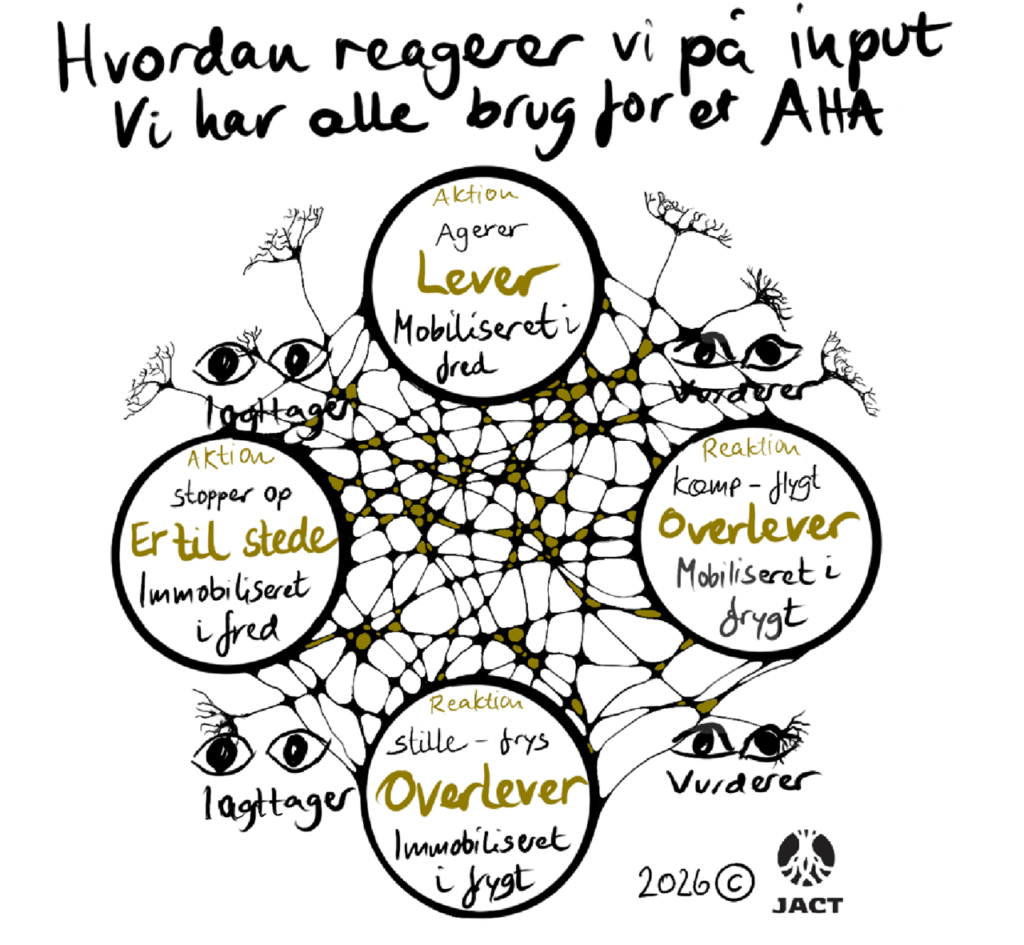 Hvordan reagerer vi på input
Vi har alle brug for et AHA
Aktion
Agerer
Lever
Mobiliseret i
fred
Iagttager
Vurderer
Aktion
stopper op
Er til stede
Immobiliseret
i fred
Reaktion
kæmp - flygt
Overlever
Mobiliseret i
frygt
Reaktion
stille - frys
Overlever
Immobiliseret
i frygt
Iagttager
Vurderer
2026 ©
JACT